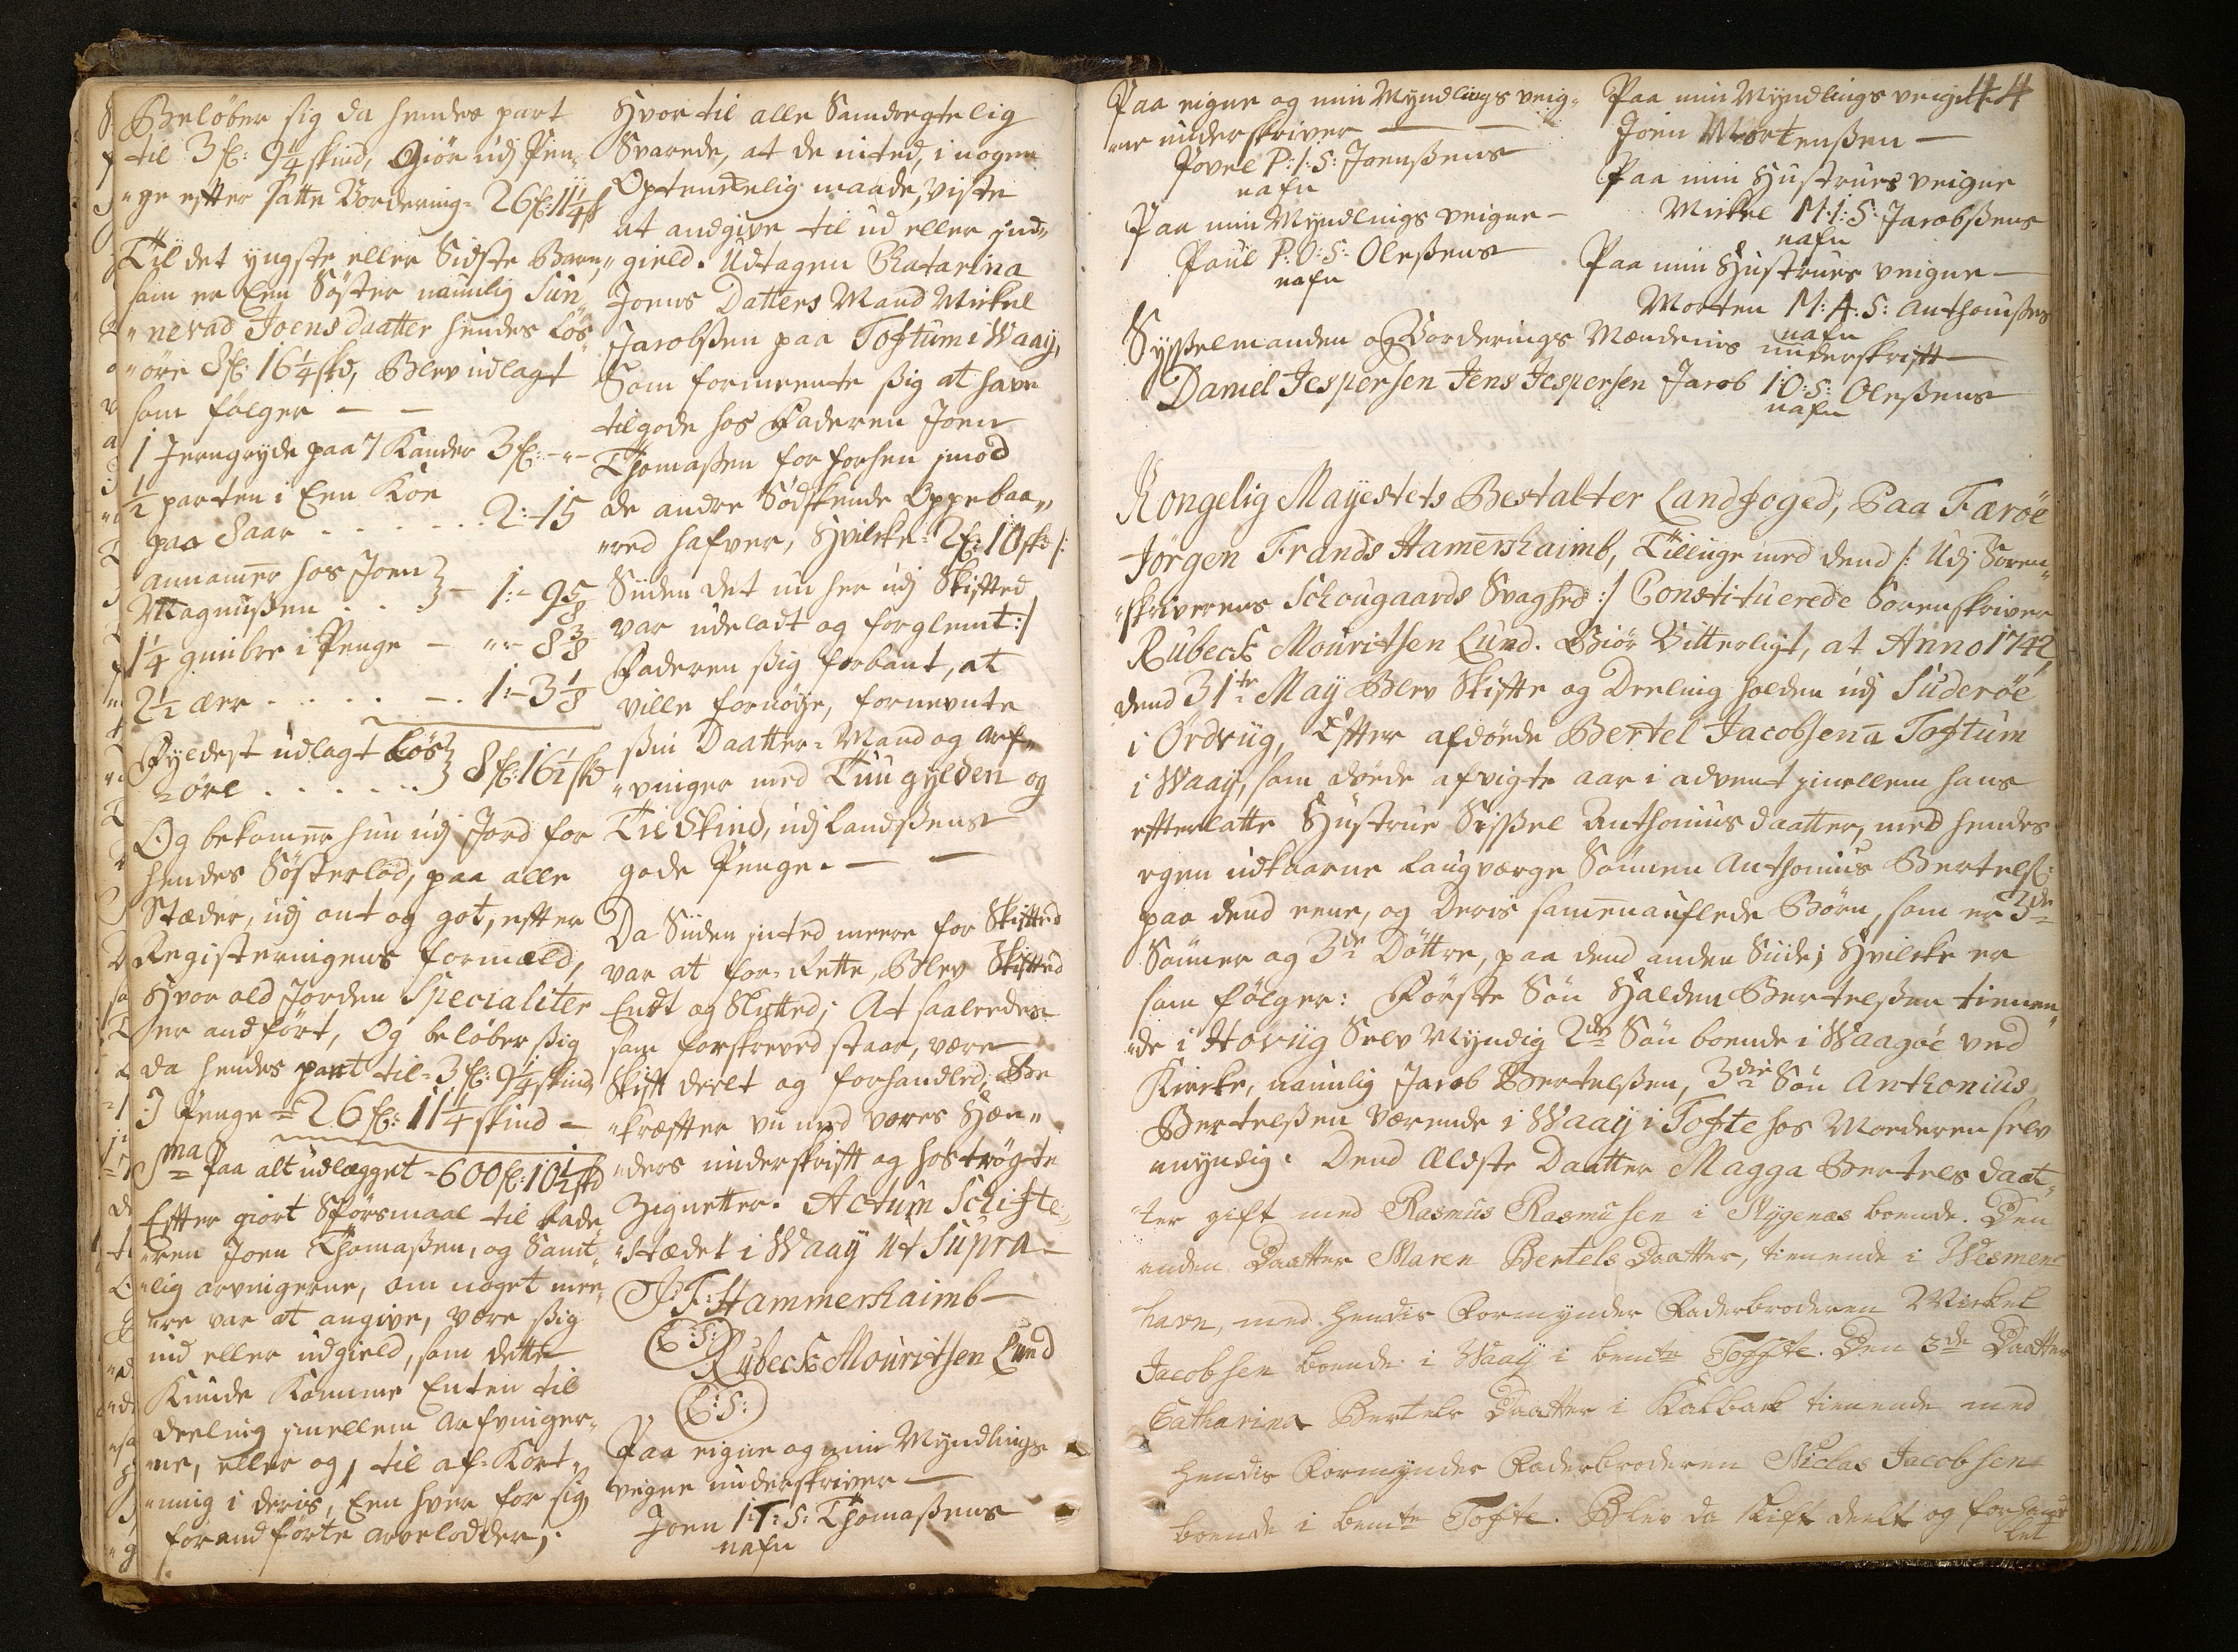 Beløber sig da hendes part
til 3 fl: 9 1/4 skind, Giör udj Pen„
„ge efter satte Vordering= 26 fl: 11 1/4 s
Til det yngste eller Sidste Barn,
som er Een Søster naunlig Sün„
„nevad Joens daatter hendes Løs„
„øre 8 fl: 16 1/4 skd, Blev udlagt
som følger — —
1 Jerngryde paa 7 Kander 3 fl: - „ -
1/2 parten i Een Koe
paa Saar . . . . . . 2: - 15
annamer hos Joen
Magnussen . . . 1: - 9 5/8
1 1/4 gimbre i Penge — „ - 8 3/8
2 1/2 ær . . . . . — . 1: - 3 1/8
Fyldest udlagt Løs„
„øre . . . . . . 8 fl: 16 1/2 skd
Og bekomer hun udj Jord for
hendes Søsterlod, paa alle
Stæder, udj ont og got, efter
Registeringens formæld,
Hvor ald Jorden Specialiter
er andført, Og beløber sig
da hendes part til= 3 fl: 9 1/4 skind
J Penge = 26 fl: 11 1/4 skind —
Sma Paa alt udlægget = 600 fl: 10 1/2 skd
Efter giort Spørsmaal til Fade„
„ren Joen Thomassen, og Samt„
„lig arvingerne, om noget mee„
„re var at angive, være sig
ind eller udgield, som dette
Kunde Komme Enten til
deeling jmellem Arfvinger„
„ne, eller og, til af= Kort„
„ning i deris, Een hver for sig
forandførte arvelodder;
Hvor til alle Samdregtelig
Svarede, at de inted, i nogen
Optenkelig maade, viste
at andgive til ud eller ind„
„gield. Udtagen Chatarina
Joens Datters Mand Mickel
Jacobssen paa Toftum i Waaÿ,
Som formeente sig at have
tilgode hos Faderen Joen
Thomassen for forsen jmod
de andre Sødskende Oppebaa„
„red hafver, Hvilcke 2 fl: 10 skd /:
Siiden det nu her udj Skiftted
var udeladt og forglemt :/
Faderen sig forbant, at
ville fornøÿe, fornevnte
sin Daatter= Mand og Arf„
„vinger med Tuu gylden og
Tie Skind, udj Landssens
gode Penge. — —
Da Siiden inted meere for Skiftted
var at for= Rette, Blev Skiftted
Endt og Slutted; At saaleedes
som forskreved staar, være
Skift deelt og forhandled, Be
„kræfter vii med vores Hæn„
„ders underskrift og hostrøgte
Zignetter. Actum Schifte„
„stædet i Waaÿ ut Supra —
J: F: Hammershaimb —
(L: S:)
Rubeck Mouritsen Lund
(L: S:)
Paa eigne og min Myndlings
veigne underskriver —
Joen I: T: S: Thomassens
nafn
44
Paa eigne og min Myndlings veig„
„ne underskriver — —
Povel P: I: S: Joenssens
nafn
Paa min Myndlings veigne —
Paul P: O: S: Olessens
nafn
Paa min Myndlings veigne
Joen Mortenssen —
Paa min Hustrues veigne
Mickel M: I: S: Jacobssens
nafn
Paa min Hustrues veigne —
Morten M: A: S: Anthonissens
nafn
Sysselmanden og Vorderings Mændenis underskrift —
Daniel Jespersen Jens Jespersen Jacob I: O: S: Olessens
nafn
Kongelig Mayestets Bestalter Landfoged, Paa Færöe
Jörgen Frands Hamershaimb, Tilliige med dend /: Udj Soren„
„skriverens Schougaards Svaghed :/ Constituerede Sorenskriver
Rubeck Mouritsen Lund. Giör Vitterligt, at Anno 1742
dend 31te May Blev Skifte og Deeling holden udj Suderöe
i Ördviig, Efter afdøde Bertel Jacobsen ÿ Toftum
i Waaÿ, som døde afvigte aar i advent jmellem hans
efterlatte Hustrue Sissel Anthonius daatter, med hendes
egen udkaarne Laugværge Sønnen Anthonius Bertels:
paa dend eene, og Deris samenauflede Børn, som er 3de
Sønner og 3de Døttre, paa dend anden Siide; Hvilcke er
som følger: Første Søn Halden Bertelssen tienen„
„de i Hovüg Selv Myndig 2den Søn boende i Waagöe ved
Kircke, naunlig Jacob Bertelssen, 3die Søn Anthonius
Bertelssen Værende i Waaÿ i Tofte hos Moderen selv
myndig. Dend Ældste Daatter Magga Bertels daat„
„ter gift med Rasmus Rasmusen i Nÿgenæs boende. Den
anden Daatter Maren Bertels Daatter, tienende i Wesmen„
„havn, med hendis Formynder Faderbroderen Mickel
Jacobsen boende i Waaÿ i bemte Toffte. Den 3de Daatter
Catharina Bertels Daatter i Kalbak tienende med
hendis Formynder Faderbroderen Niclas Jacobsen
boende i bemte Tofte. Blev da skift deelt og forhand
let